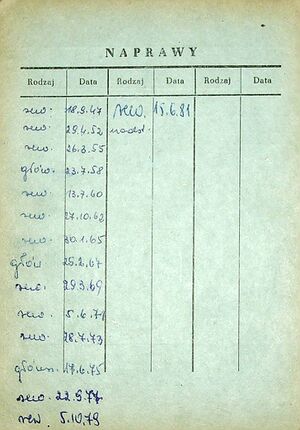 NAPRAWY
Rodzaj Data Rodzaj Data Rodzaj Data
rew. 18.9.47 rew. 15.6.81
rew. 29.4.52
rew. 26.3.55
główn. 23.7.58
rew. 13.7.60
rew. 27.10.62
rew. 30.1.65
główn 25.2.67
rew. 29.3.69
rew. 5.6.71
rew. 28.7.73
główn. 17.6.75
rew. 22.9.77
rew. 5.10.79